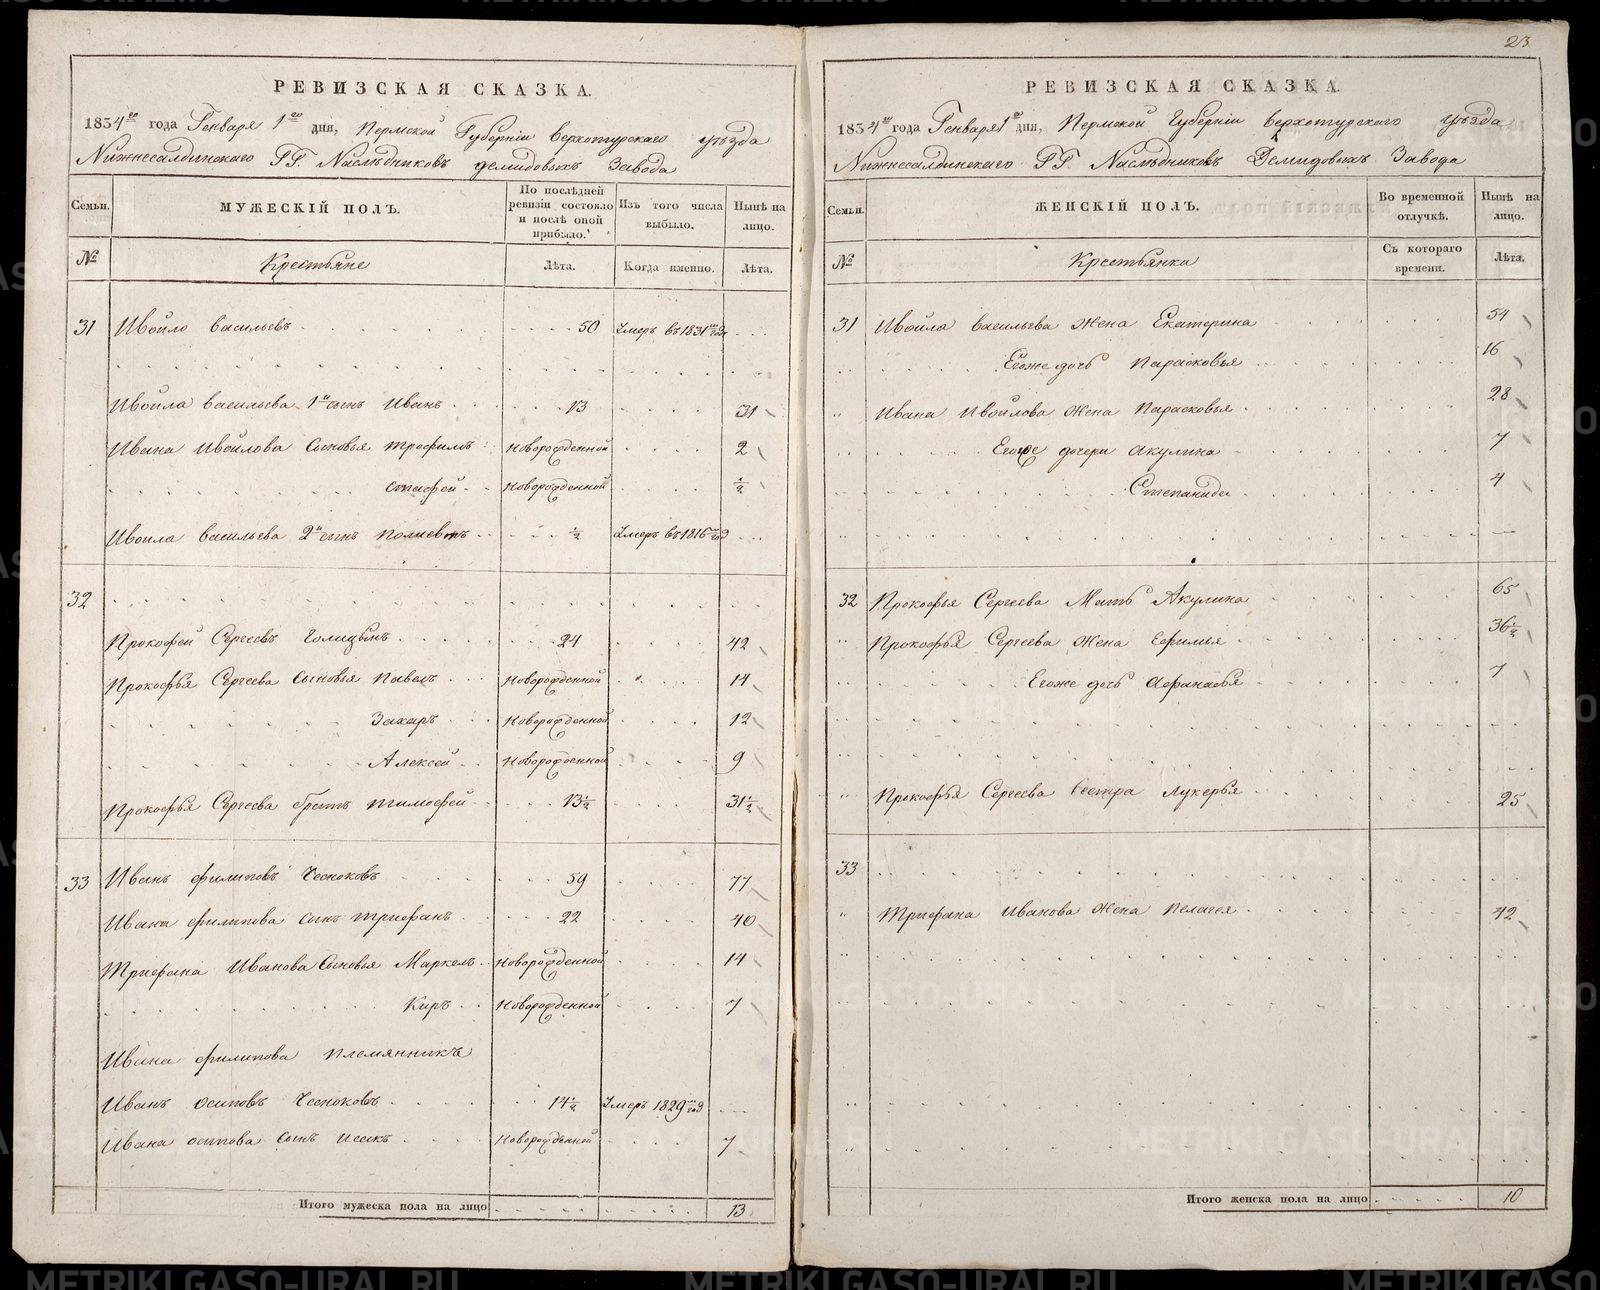 РЕВИЗСКАЯ СКАЗКА.
1834го года Генваря 1го дня, Пермской Губерніи Верхотурскаго уѣзда
Нижнесалдинскаго ГГ. Наслѣдниковъ Демидовыхъ Завода
Семьи. МУЖЕСКІЙ ПОЛЪ. По послѣдней ревизіи состояло и послѣ оной прибыло. Изъ того числа выбыло. Нынѣ на лицо.
№ Крестьяне Лѣта. Когда именно. Лѣта.
31 Ивойло Васильевъ 50 Умеръ въ 1831м год
Ивойла Васильева 1й сынъ Иванъ 13 31
Ивана Ивойлова Сыновья Трофимъ Новорожденной 2
Стафей Новорожденной ½
Ивойла Васильева 2й сынъ Полиевкт ½ Умеръ въ 1816м год
32
Прокофей Сергеевъ Голицынъ 24 42
Прокофья Сергеева Сыновья Павелъ Новорожденной 14
Захаръ Новорожденной 12
Алексей Новорожденной 9
Прокофья Сергеева братъ Тимофей 13½ 31½
33 Иванъ Филиповъ Чесноковъ 59 77
Ивана Филипова сынъ Трифанъ 22 40
Трифана Иванова Сыновья Маркелъ Новорожденной 14
Киръ Новорожденной 7
Ивана Филипова Племянникъ
Иванъ Осиповъ Чесноковъ 14½ Умеръ 1829м год
Ивана Осипова сынъ Исакъ Новорожденной 7
Итого мужеска пола на лицо 13
23
РЕВИЗСКАЯ СКАЗКА.
1834го года Генваря 1го дня, Пермской Губерніи Верхотурскаго уѣзда
Нижнесалдинскаго ГГ. Наслѣдниковъ Демидовыхъ Завода
Семьи. ЖЕНСКІЙ ПОЛЪ. Во временной отлучкѣ. Нынѣ на лицо.
№ Крестьянки Съ котораго времени. Лѣта.
31 Ивойла Васильева Жена Екатерина 54
Егоже дочь Парасковья 16
Ивана Ивойлова Жена Парасковья 28
Егоже дочери Акулина 7
Степанида 4
32 Прокофья Сергеева Мать Акулина 65
Прокофья Сергеева Жена Ефимья 36½
Егоже дочь Афанасья 7
Прокофья Сергеева Сестра Лукерья 25
33
Трифана Иванова Жена Пелагея 42
Итого женска пола на лицо 10
METRIKI.GASO-URAL.RU